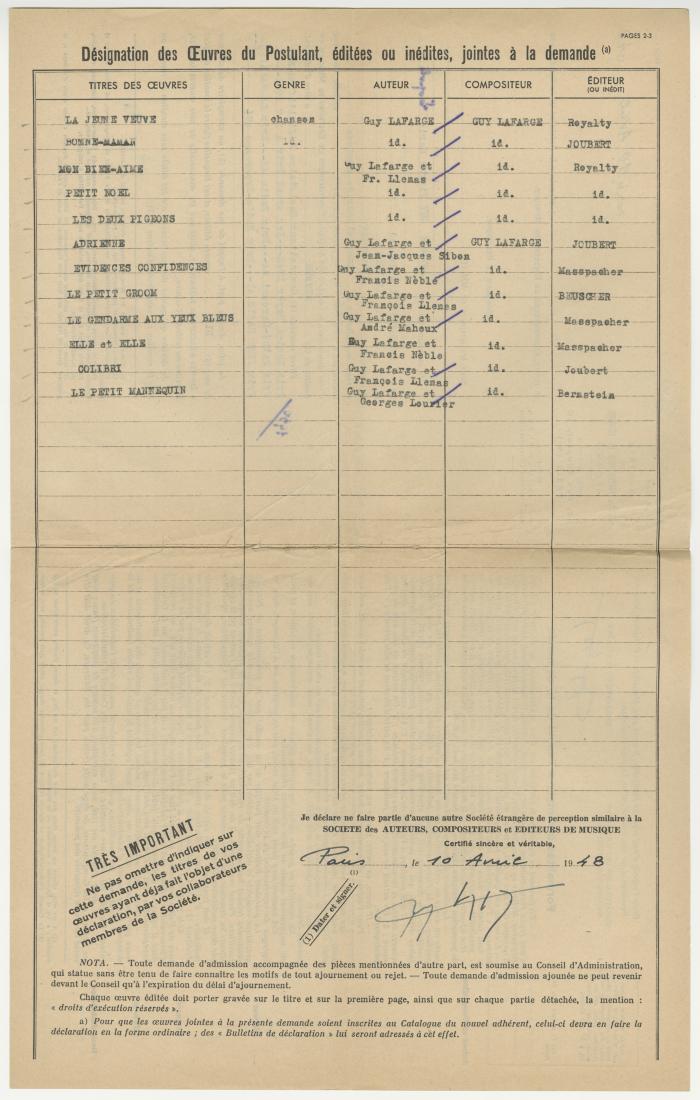 PAGES 2-3
Désignation des Œuvres du Postulant, éditées ou inédites, jointes à la demande (a)
TITRES DES ŒUVRES GENRE AUTEUR COMPOSITEUR ÉDITEUR (OU INÉDIT)
LA JEUNE VEUVE chanson Guy LAFARGE GUY LAFARGE Royalty
BONNE-MAMAN id. id. id. JOUBERT
MON BIEN-AIME Guy Lafarge et Fr. Llenas id. Royalty
PETIT NOEL id. id. id.
LES DEUX PIGEONS id. id. id.
ADRIENNE Guy Lafarge et Jean-Jacques Sibon GUY LAFARGE JOUBERT
EVIDENCES CONFIDENCES Guy Lafarge et Francis Nèble id. Masspacher
LE PETIT GROOM Guy Lafarge et François Llenas id. BEUSCHER
LE GENDARME AUX YEUX BLEUS Guy Lafarge et André Maheux id. Masspacher
ELLE et ELLE Guy Lafarge et Francis Nèble id. Masspacher
COLIBRI Guy Lafarge et François Llenas id. Joubert
LE PETIT MANNEQUIN Guy Lafarge et Georges Lourier id. Bernstein
Je déclare ne faire partie d'aucune autre Société étrangère de perception similaire à la
SOCIETE des AUTEURS, COMPOSITEURS et EDITEURS DE MUSIQUE
Certifié sincère et véritable,
Paris, le 10 Avril 1948
(1)
(1) Dater et signer.
TRÈS IMPORTANT
Ne pas omettre d'indiquer sur
cette demande, les titres de vos
œuvres ayant déja fait l'objet d'une
déclaration, par vos collaborateurs
membres de la Société.
NOTA. — Toute demande d'admission accompagnée des pièces mentionnées d'autre part, est soumise au Conseil d'Administration,
qui statue sans être tenu de faire connaître les motifs de tout ajournement ou rejet. — Toute demande d'admission ajounée ne peut revenir
devant le Conseil qu'à l'expiration du délai d'ajournement.
Chaque œuvre éditée doit porter gravée sur le titre et sur la première page, ainsi que sur chaque partie détachée, la mention :
« droits d'exécution réservés ».
a) Pour que les œuvres jointes à la présente demande soient inscrites au Catalogue du nouvel adhérent, celui-ci devra en faire la
déclaration en la forme ordinaire ; des « Bulletins de déclaration » lui seront adressés à cet effet.